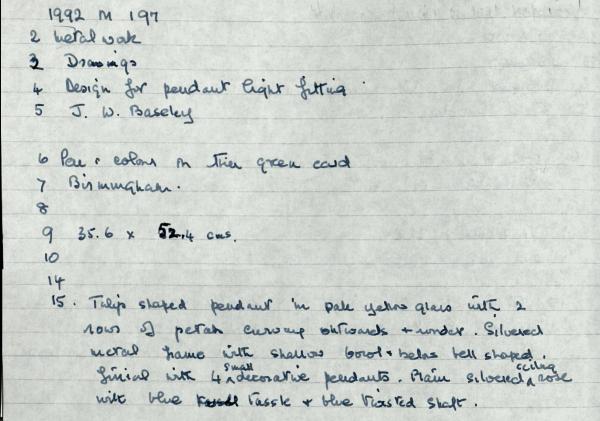 1992 M 197
2 Metal work
3 Drawings
4 Design for pendant light fitting
5 J. W. Baseley
6 Pen & colour on thin green card
7 Birmingham.
8
9 35.6 x 52.4 cms.
10
14
15. Tulip shaped pendant in pale yellow glass with 2
rows of petals curving outwards & under. Silvered
metal frame with shallow bowl & below bell shaped
finial with 4 small decorative pendants. Plain silvered ceiling rose
with blue tassle & blue twisted shaft.